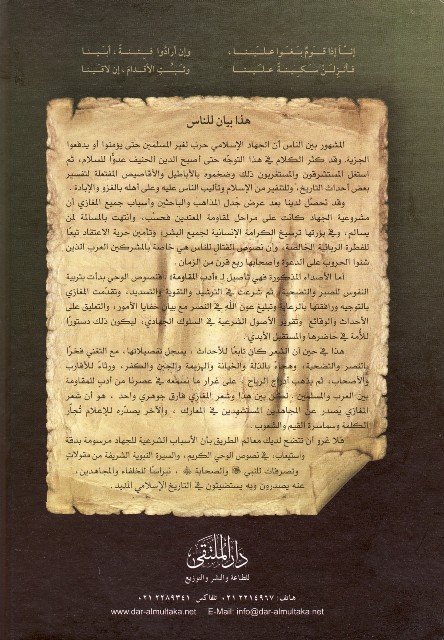 إنّا إذا قومٌ بغَوا علينا ، وإن أرادُوا فتنةً ، أبَينا
فأنزِلَنْ سَكينةً علينا وثبِّتِ الأقدامَ ، إن لاقينا
هذا بيان للناس
المشهور بين الناس أن الجهاد الإسلامي حرب لغير المسلمين حتى يؤمنوا أو يدفعوا
الجزية. وقد كثر الكلام في هذا التوجّه حتى أصبح الدين الحنيف عدوًّا للسلام، ثم
استغل المستشرقون والمستغربون ذلك وضخموه بالأباطيل والأقاصيص المفتعلة لتفسير
بعض أحداث التاريخ، وللتنفير من الإسلام وتأليب الناس عليه وعلى أهله بالغزو والإبادة.
وقد تحصّل لدينا بعد عرض جدل المذاهب والباحثين وأسباب جميع المغازي أن
مشروعية الجهاد كانت على مراحل لمقاومة المعتدين فحسب، وانتهت بالمسالمة لمن
يسالم، وفي بؤرتها ترسيخ الكرامة الإنسانية لجميع البشر، وتأمين حرية الاعتقاد تبعًا
للفطرة الربانية الخالصة، وأن نصوص القتال للناس هي خاصة بالمشركين العرب الذين
شنوا الحروب على الدعوة وأصحابها ربع قرن من الزمان.
أما الأصداء المذكورة فهي تأصيل لـ «أدب المقاومة»، فنصوص الوحي بدأت بتربية
النفوس للصبر والتضحية، ثم شرعت في الترشيد والتقوية والتسديد، وتقدمت المغازي
بالتوجيه ورافقتها بالرعاية وتبليغ عون الله في النصر مع بيان خفايا الأمور، والتعليق على
الأحداث والوقائع وتقرير الأصول الشرعية في السلوك الجهادي، ليكون ذلك دستورًا
للأمة في حاضرها والمستقبل الأبدي.
هذا في حين أن الشعر كان تابعًا للأحداث ، يسجل تفصيلاتها، مع التغني فخرًا
بالنصر والتضحية، وهجاءً بالذلة والخيانة والهزيمة والجبن والكفر، ورثاءً للأقارب
والأصحاب، ثم يذهب أدراج الرياح ؛ على غرار ما نسمعه في عصرنا من أدب للمقاومة
بين العرب والمسلمين. لكن بين هذا وشعر المغازي فارق جوهري واحد ، هو أن شعر
المغازي يصدر عن المجاهدين المستشهدين في المعارك ، والآخر يصدّره للإعلام تُجار
الكلمة وسماسرة القيم والشعوب.
فلا غرو أن تتضح لديك معالم الطريق بأن الأسباب الشرعية للجهاد مرسومة بدقة
واستيعاب، في نصوص الوحي الكريم، والسيرة النبوية الشريفة من مقولاتٍ
وتصرفات للنبي ﷺ والصحابة ، نبراسًا للخلفاء والمجاهدين،
عنه يصدرون وبه يستضيئون في التاريخ الإسلامي المديد.
دار الملتقى
للطباعة والنشر والتوزيع
هاتف: ٢٢١٤٩٦٧ ٠٢١ تلفاكس: ٢٢٨٩٣٤١ ٠٢١
www.dar-almultaka.net E-Mail: info@dar-almultaka.net